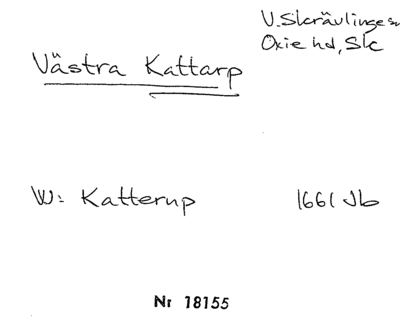 V. Skrävlinge sn
Oxie hd, Sk
Västra Kattarp
W: Katterup 1661 Jb
Nr 18155